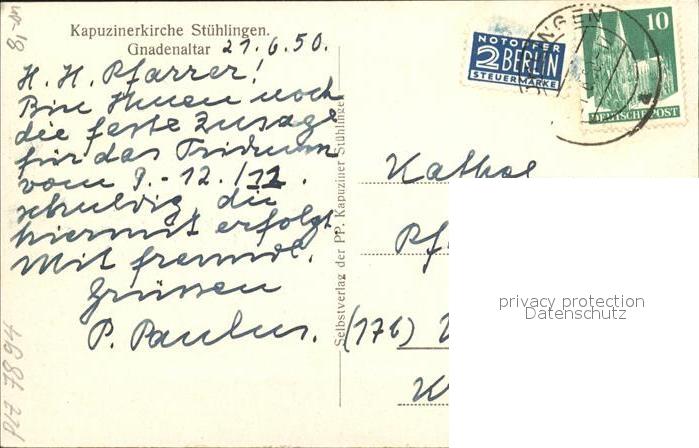 Kapuzinerkirche Stühlingen.
Gnadenaltar
21.6.50.
H. H. Pfarrer!
Bin Ihnen noch
die feste Zusage
für das Triduum
vom 9.-12./11.
schuldig, die
hiermit erfolgt.
Mit freundl.
Grüssen
P. Paulus.
Selbstverlag der PP. Kapuziner Stühlingen
NOTOPFER
2 BERLIN
STEUERMARKE
10
DEUTSCHE POST
Kathol
Pf
(17b)
PLZ 7894
privacy protection
Datenschutz